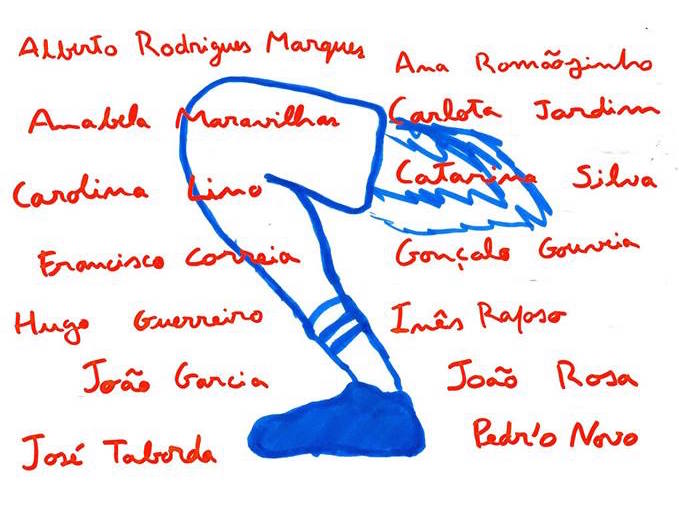 Alberto Rodrigues Marques
Ana Romãozinho
Anabela Maravilhas
Carlota Jardim
Carolina Lino
Catarina Silva
Francisco Correia
Gonçalo Gouveia
Hugo Guerreiro
Inês Raposo
João Garcia
João Rosa
José Taborda
Pedr'o Novo